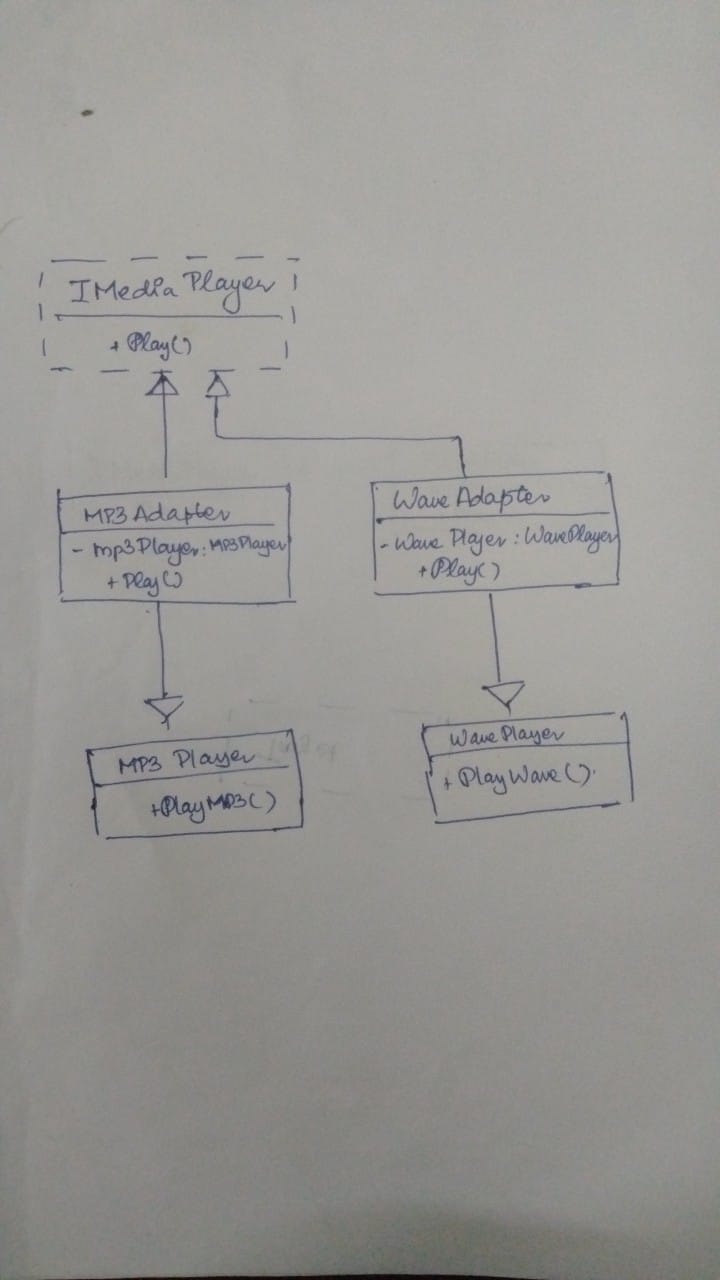 IMedia Player
+ Play()
MP3 Adapter
- mp3Player: MP3Player
+ Play()
Wave Adapter
- Wave Player : WavePlayer
+ Play()
MP3 Player
+PlayMP3()
Wave Player
+ Play Wave().